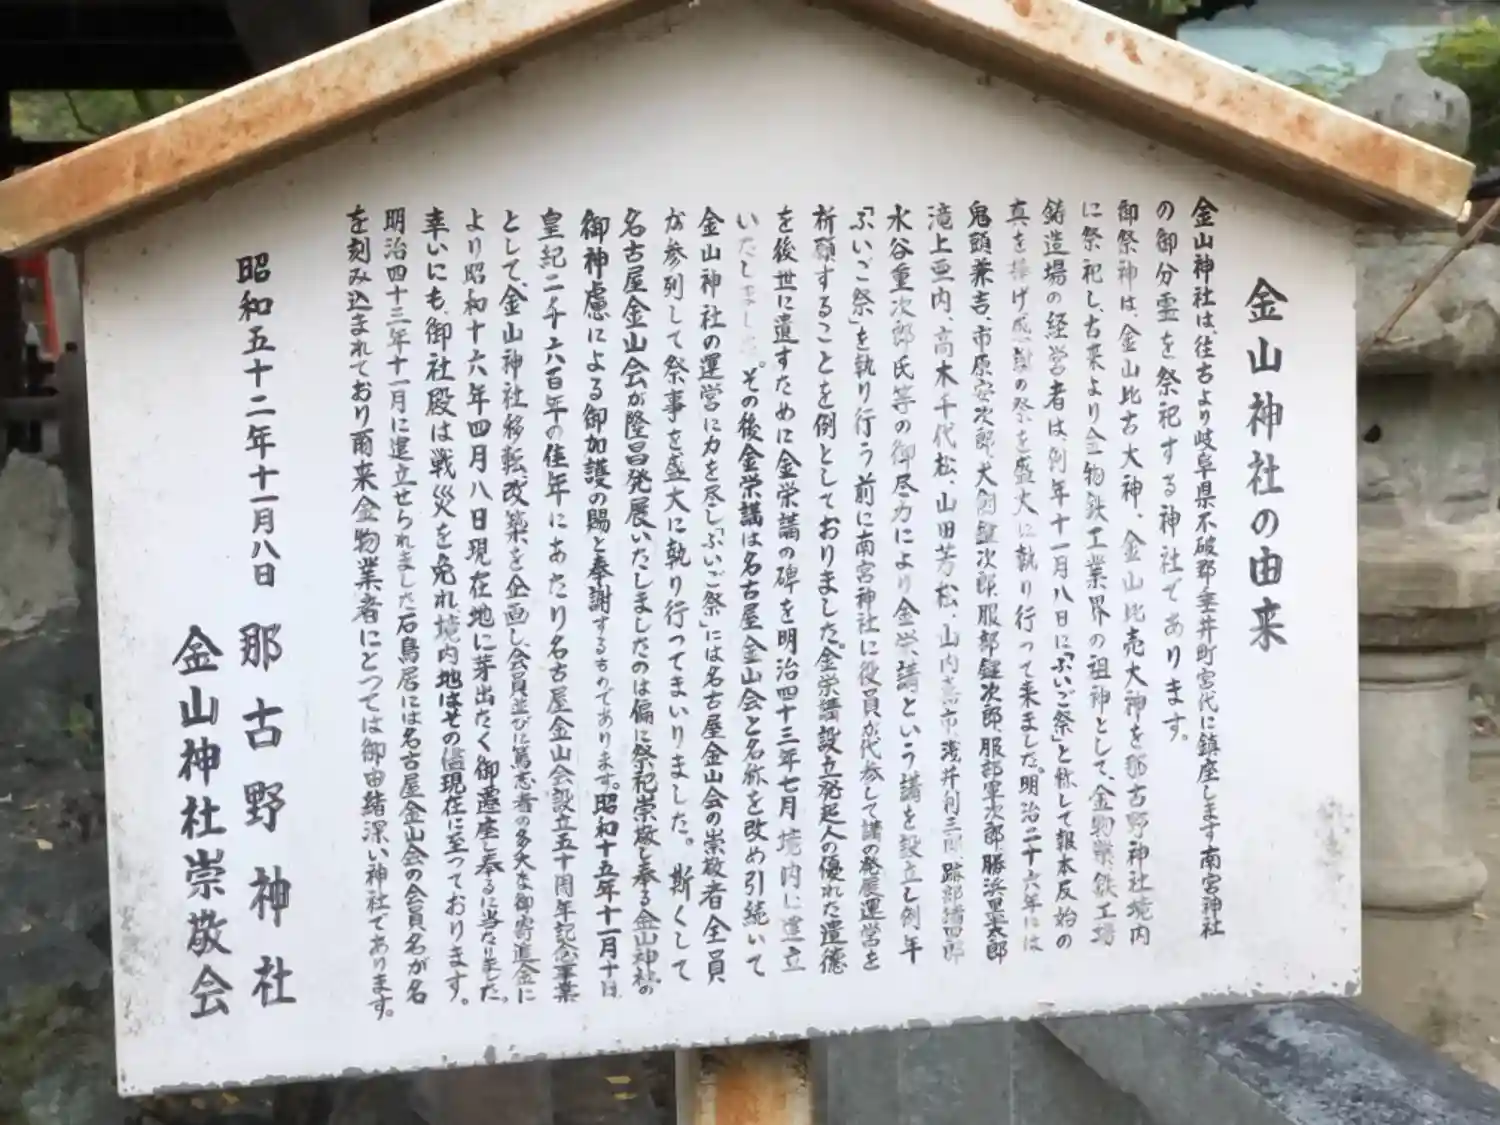 金山神社の由来
金山神社は、往古より岐阜県不破郡垂井町宮代に鎮座します南宮神社
の御分霊を祭祀する神社であります。
御祭神は、金山比古大神、金山比売大神を那古野神社境内
に祭祀し、古来より金物鉄工業界の祖神として、金物業鉄工場
鋳造場の経営者は、例年十一月八日に「ふいご祭」と称して報本反始の
真を捧げ感謝の祭を盛大に執り行って来ました。明治二十六年には
鬼頭兼吉、市原安次郎、犬飼鍵次郎、服部鍵次郎、服部軍次郎、勝浜里太郎
滝上亜内、高木千代松、山田芳松、山内 浅井利三郎、
水谷重次郎氏等の御尽力により金栄講という講を設立し例年
「ふいご祭」を執り行う前に南宮神社に役員が代参して講の発展運営を
祈願することを例としておりました。金栄講設立発起人の優れた遺徳
を後世に遺すために金栄講の碑を明治四十三年七月境内に建立
いたしました。その後金栄講は名古屋金山会と名称を改め引続いて
金山神社の運営に力を尽し「ふいご祭」には名古屋金山会の崇敬者全員
が参列して祭事を盛大に執り行ってまいりました。斯くして
名古屋金山会が隆昌発展いたしましたのは偏に祭祀崇敬し奉る金山神社の
御神慮による御加護の賜と奉謝するものであります。昭和十五年十一月十日
皇紀二千六百年の佳年にあたり名古屋金山会設立五十周年記念事業
として、金山神社移転改築を企画し会員並びに篤志者の多大な御寄進金に
より昭和十六年四月八日現在地に芽出たく御遷座し奉るに当たりました。
幸いにも、御社殿は戦災を免れ、境内地はその儘現在に至っております。
明治四十三年十一月に建立せられました石鳥居には名古屋金山会の会員名が名
を刻み込まれており爾来金物業者にとっては御由緒深い神社であります。
昭和五十二年十一月八日 那古野神社
金山神社崇敬会